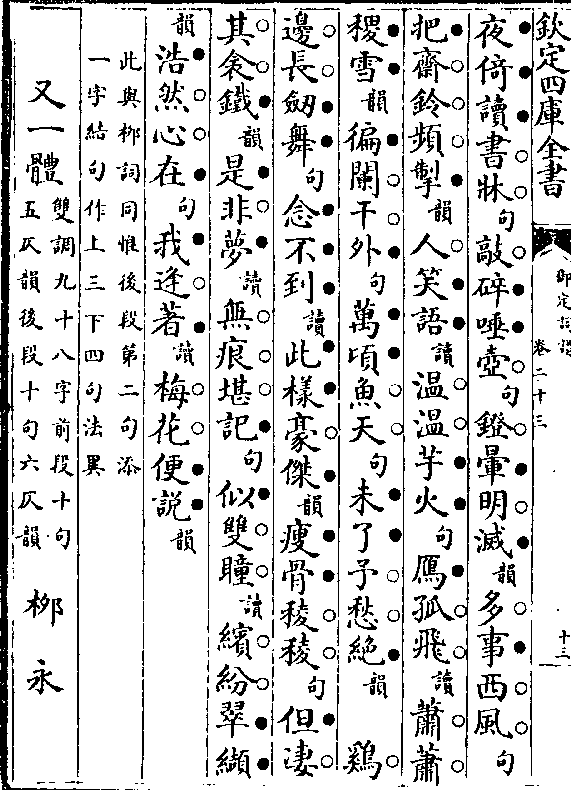 欽定四庫全書
御定詞譜 卷二十三 十三
夜倚讀書牀句敲碎唾壺句鐙暈明滅韻多事西風句
把齋鈴頻掣韻人笑語讀温温芋火句鴈孤飛讀蕭蕭
稷雪韻徧闌干外句萬頃魚天句未了予愁絶韻 鷄
邊長劒舞句念不到讀此様豪傑韻瘦骨稜稜句但凄
其衾鐵韻是非夢讀無痕堪記句似雙瞳讀繽紛翠纈
韻浩然心在句我逢著讀梅花便説韻
此與栁詞同惟後段第二句添
一字結句作上三下四句法異
又一體雙調九十八字前段十句
五仄韻後段十句六仄韻 栁永